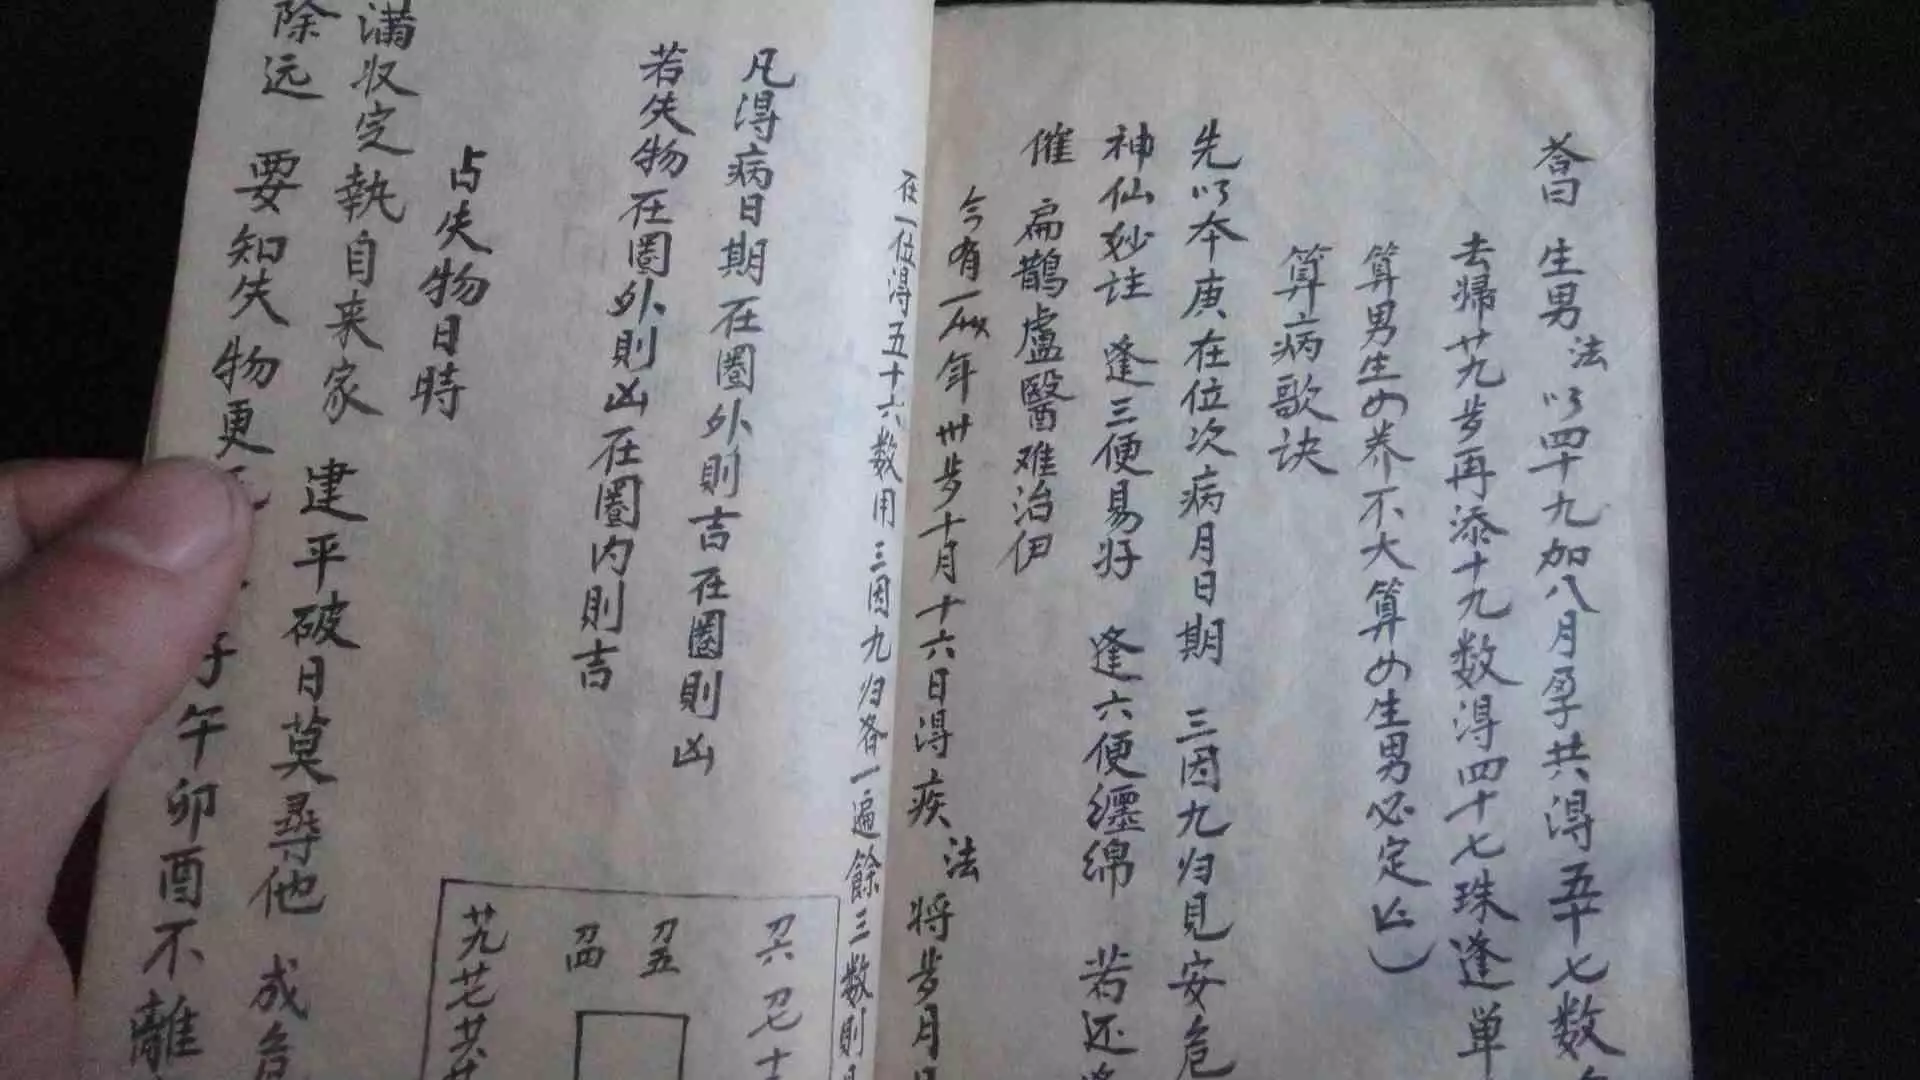 荅曰 生男 法 以四十九加八月孕共得五十七数
去歸廿九岁再添十九数得四十七珠逢单
算男生女养不大算女生男必定亡
算病歌诀
先以本庚在位次病月日期 三因九归見安危
神仙妙诀 逢三便易好 逢六便纒绵 若还逢
催 扁鵲盧醫难治伊
今有一 年卅岁十月十六日得疾 法 将岁月日
在一位得五十六数用三因九归各一遍餘三数則
凡得病日期在圈外則吉在圈則凶
若失物在圈外則凶在圈内則吉
占失物日時
满收定執自来家 建平破日莫尋他 成危
除远 要知失物更 子午卯酉不離
卄九 卄七
刀四 刀五 刀六 刀七